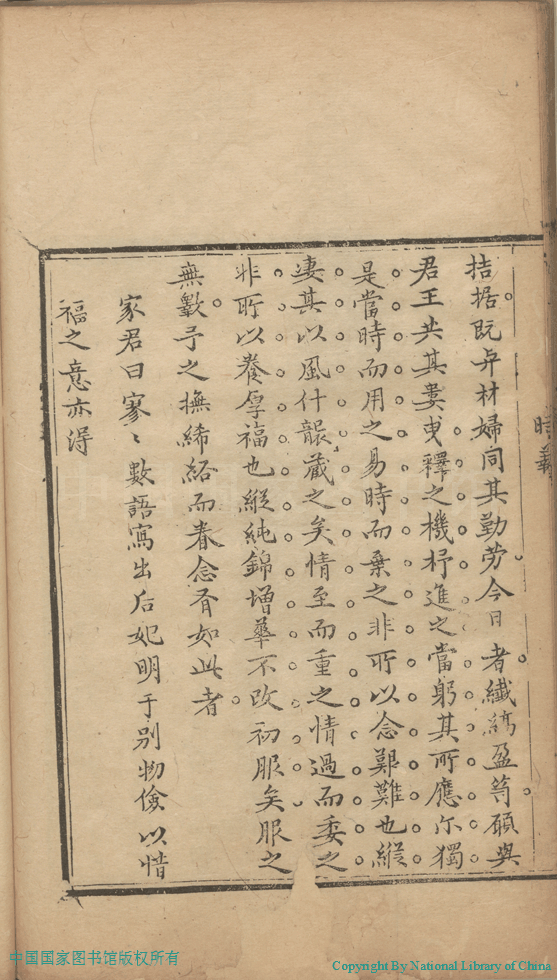 拮据既與材婦同其勤劳今日者纖縞盈笥頋與
君王共其婁曳釋之機杼進之當躬其所應尓獨
是當時而用之易時而棄之非所以念艱難也縱
淒其以風什襲藏之矣情至而重之情過而委之
非所以養厚福也縱純錦增華不改初服矣服之
無斁予之撫絺綌而眷念有如此者
家君曰寥〻數語寫出后妃明于别物儉以惜
福之意亦得
中国国家图书馆版权所有
Copyright By National Library of China